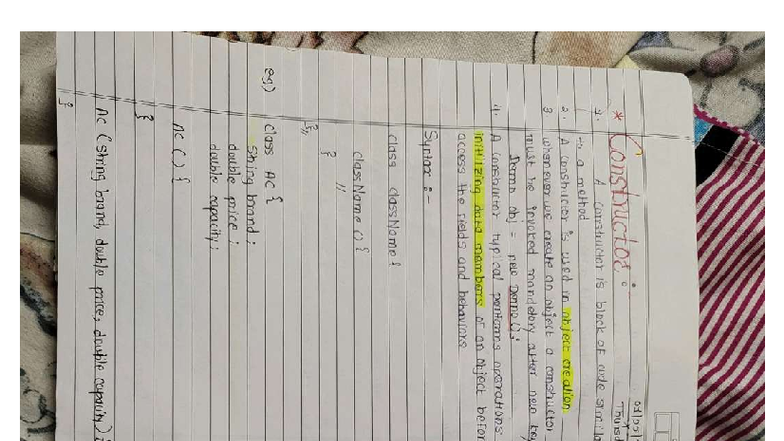 * Constructor :-
1. A Constructor is block of code
to a method
2. A Constructor is used in object creation
3 whenever we create an object a constructor
must be invoked mandatory after new
Demo obj = new Demo();
4. A Constructor typical performs operations
initilizing data members of an object
access the fields and behaviors
Syntax :-
class className {
className () {
//
}
}
eg) class AC {
String brand ;
double price ;
double capacity ;
AC () {
}
AC (String brand, double price, double capacity) {
}